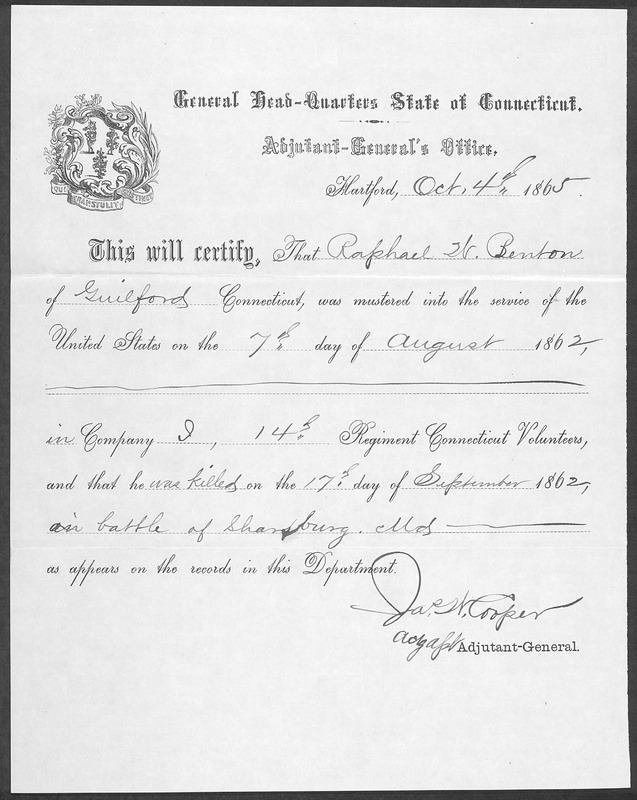 General Head-Quarters State of Connecticut.
Adjutant-General's Office.
QUI TRANSTULIT SUSTINET
Hartford, Oct. 4th 1865.
This will certify, That Raphael W. Benton
of Guilford Connecticut, was mustered into the service of the
United States on the 7th day of August 1862,
in Company I, 14th Regiment Connecticut Volunteers,
and that he was killed on the 17th day of September 1862,
in battle of Sharpsburg. Md
as appears on the records in this Department.
Jas. W. Cooper
Actg Asst Adjutant-General.